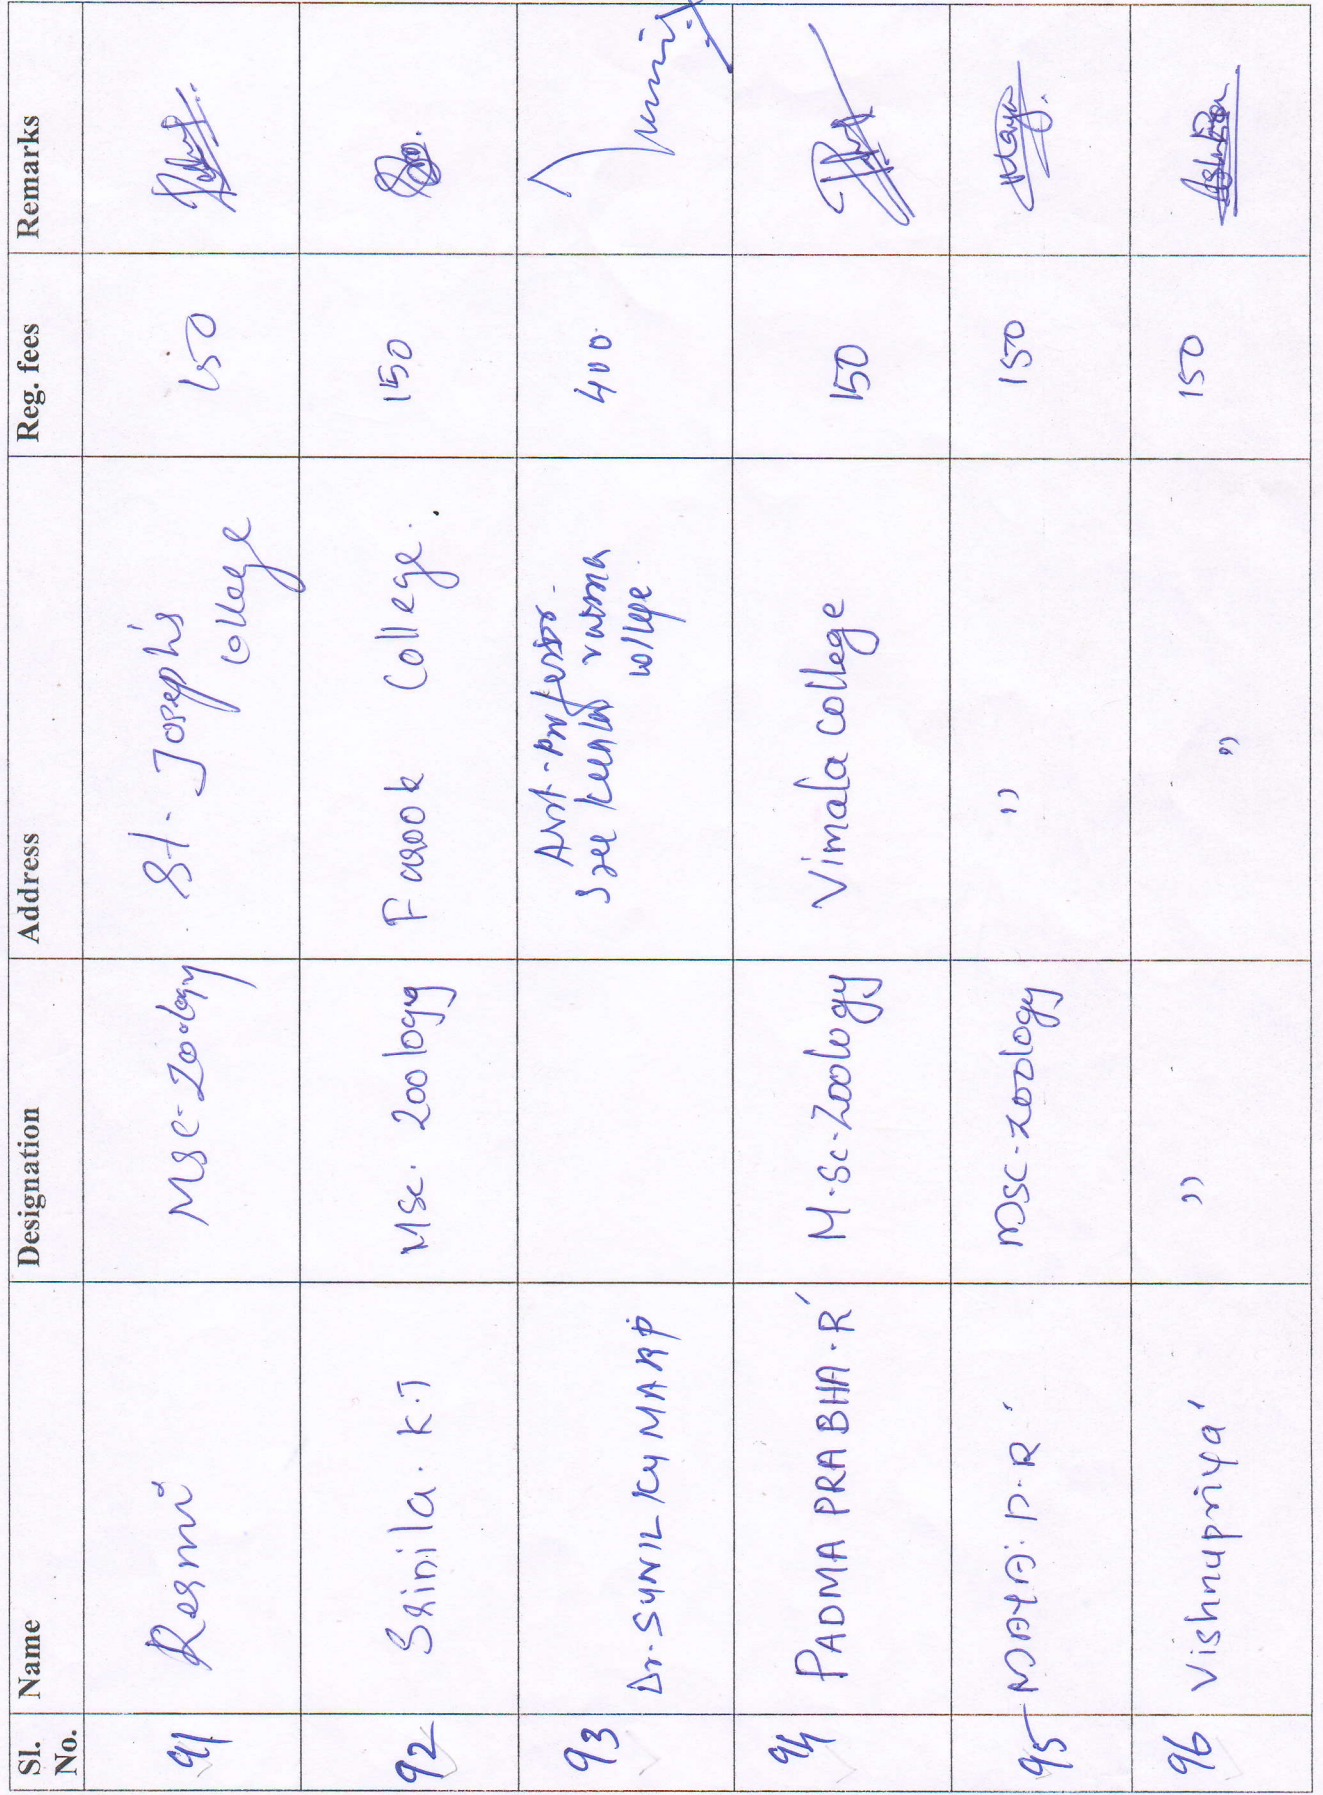 Sl. No. Name Designation Address Reg. fees Remarks
91 Resmi MSc-Zoology St. Joseph's College 150
92 Srinila. K.J MSc. Zoology Farook College. 150
93 Dr. SUNIL KUMAR P Asst. professor. Sree Kerala varma college 400
94 PADMA PRABHA. R M.Sc-Zoology Vimala college 150
95 MAYA. P.R MSC-Zoology " 150
96 Vishnupriya " " 150